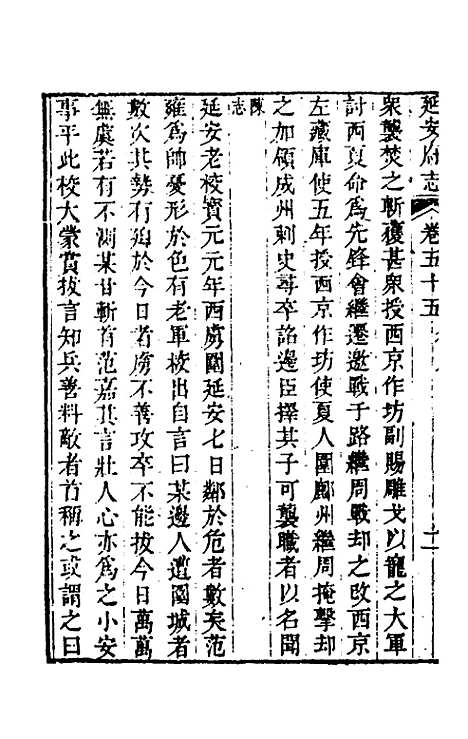 延安府志 卷五十五 二
衆襲焚之斬獲甚衆授西京作坊副賜雕戈以寵之大軍
討西夏命爲先鋒會繼遷邀戰于路繼周戰却之改西京
左藏庫使五年授西京作坊使夏人圍鄜州繼周掩擊却
之加領成州刺史尋卒詔邊臣擇其子可襲職者以名聞
陝志
延安老校寳元元年西虜圍延安七日鄰於危者數矣范
雍爲帥憂形於色有老軍校出自言曰某邊人遭圍城者
數次其勢有廹於今日者虜不善攻卒不能拔今日萬萬
無虞若有不測某甘斬首范嘉其言壯人心亦爲之小安
事平此校大蒙賞拔言知兵善料敵者首稱之或謂之曰